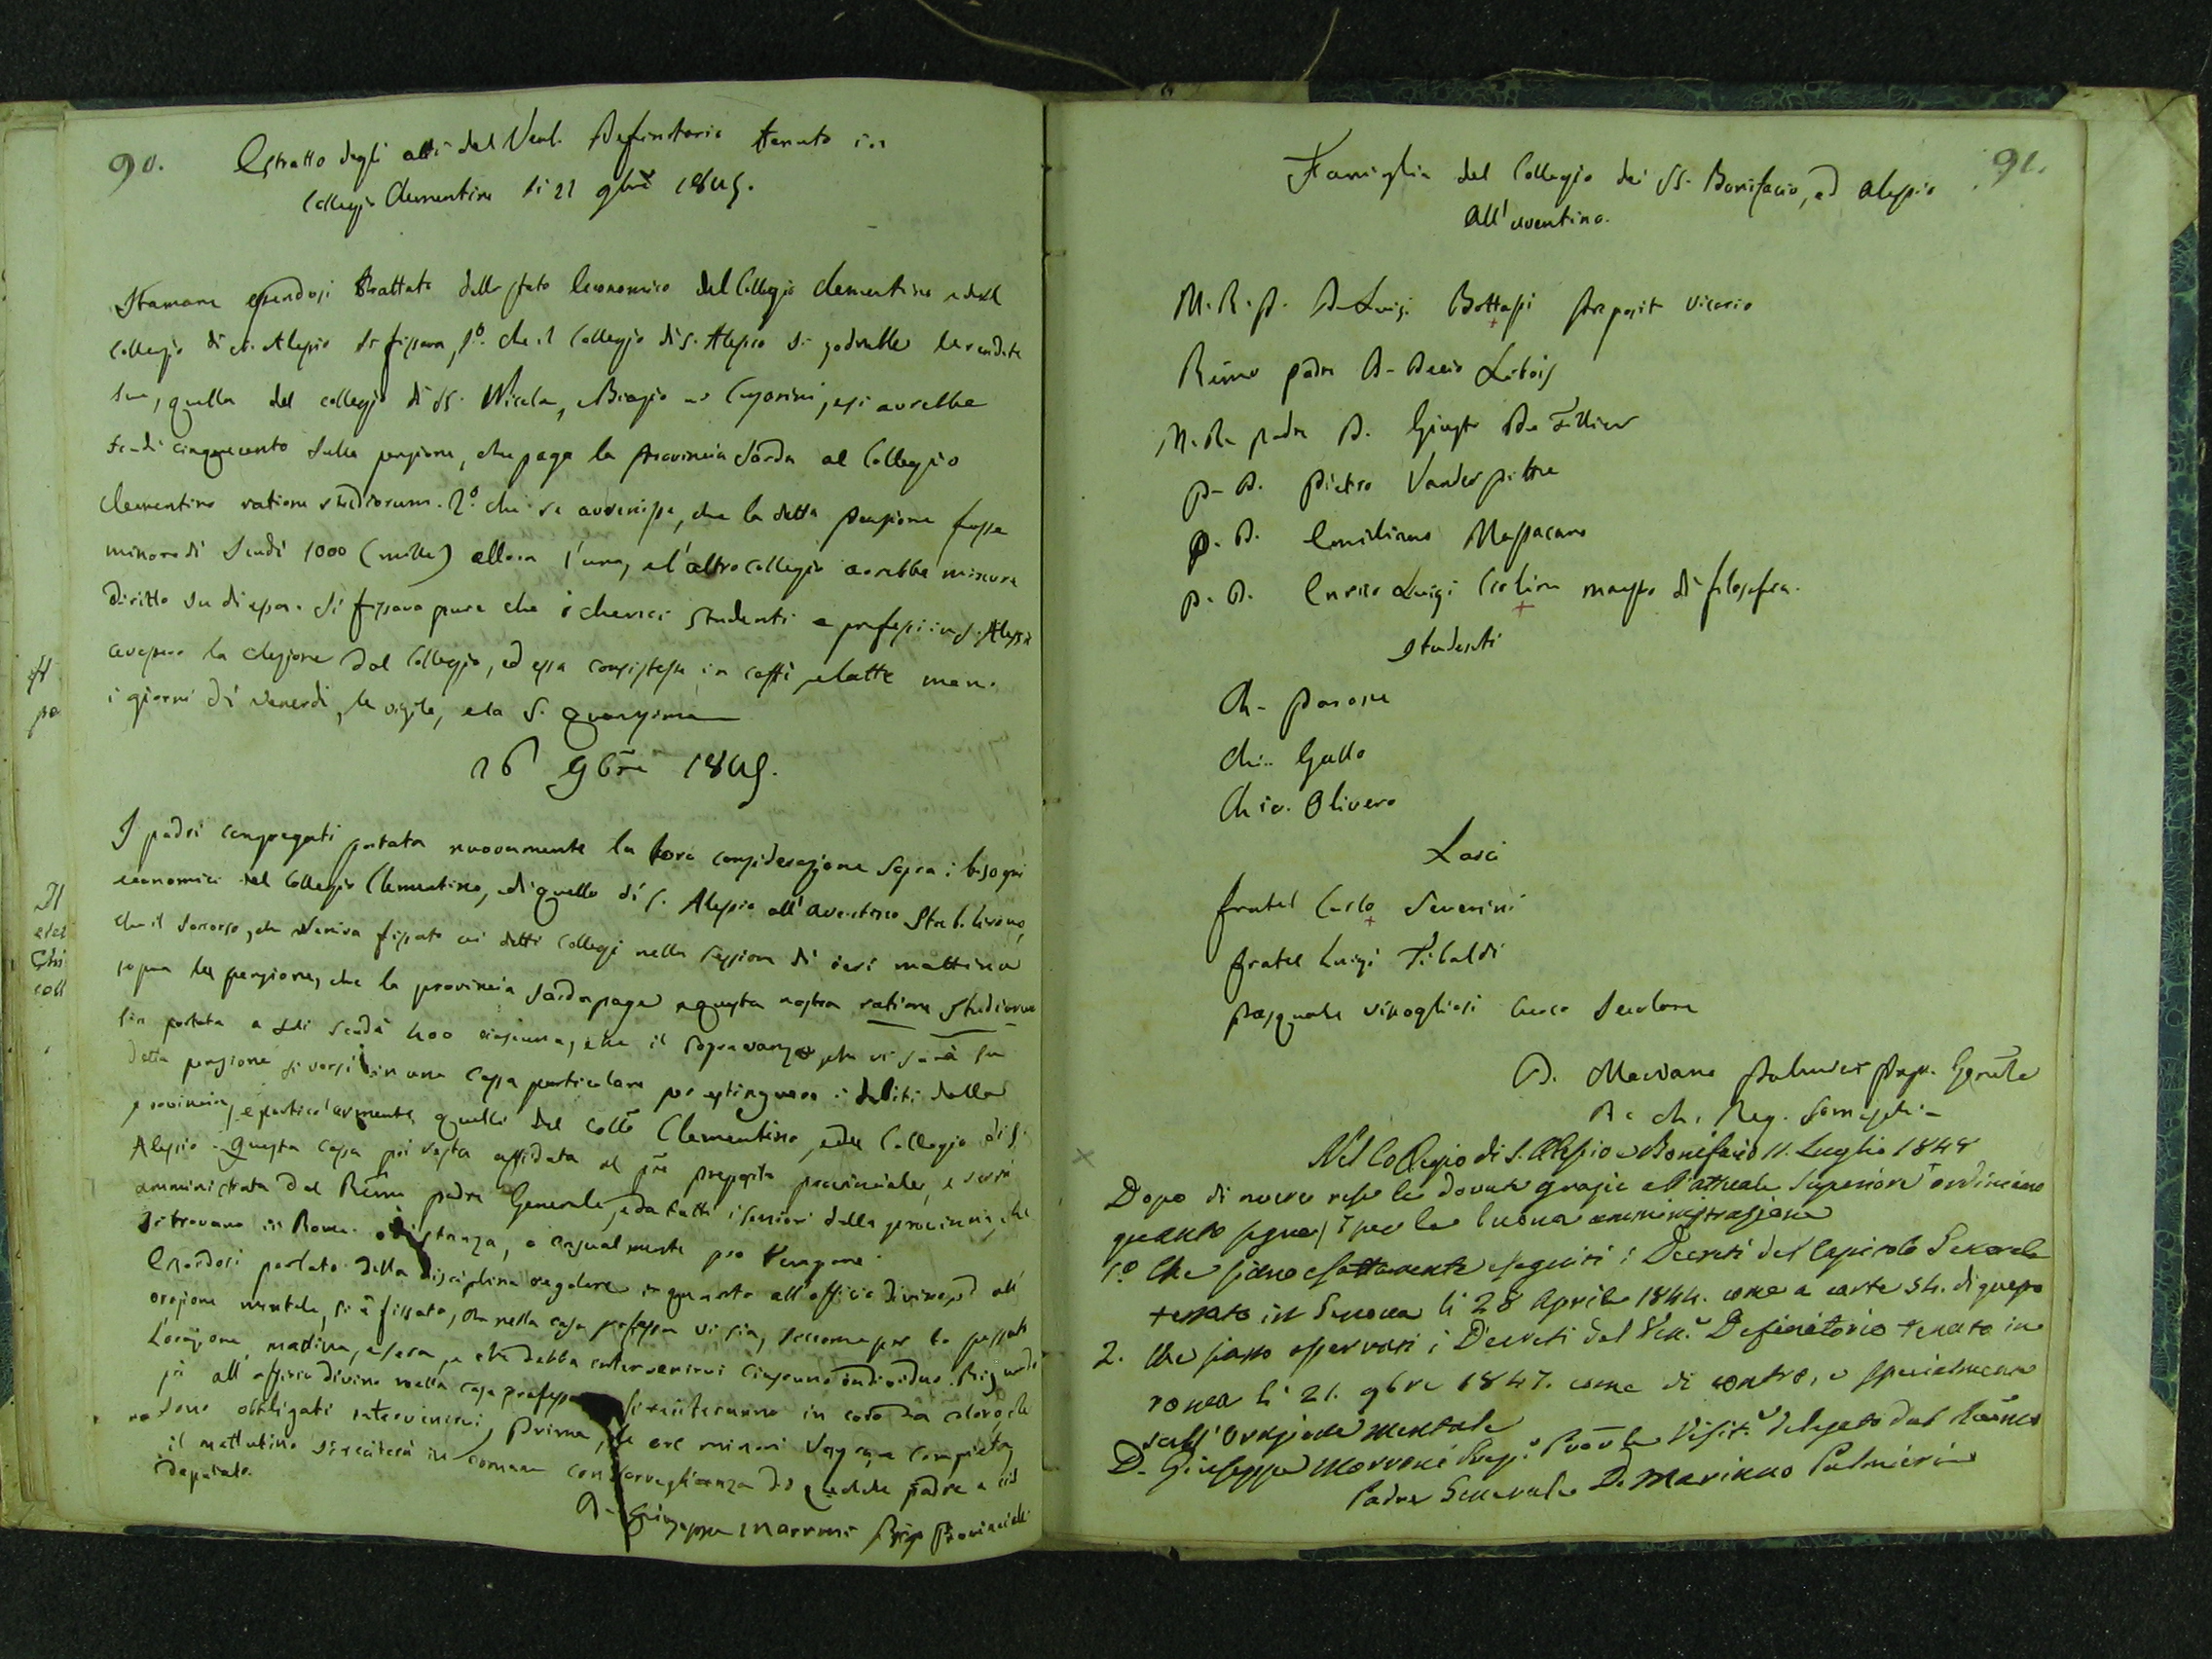 90.
Estratto degli atti del Venl. Definitorio tenuto in
Collegio Clementino li 21 gbre 184
Stamane essendosi trattato dello stato Economico del Collegio Clementino e del
Collegio di S. Alessio si fissava, 1º. che il Collegio di S. Alessio si godrebbe le rendite
sue, quelle del collegio di SS. Nicola, e Biagio a' Cesarini, e si avrebbe
scudi cinquecento sulla pensione, che paga la Provincia Sarda al Collegio
Clementino ratione studiorum. 2º. che se avvenisse, che la detta pensione fosse
minore di Scudi 1000 (mille) allora l'uno, e l'altro collegio avrebbe minore
diritto su di essa. Si fissava pure che i cherici studenti e professi in S. Alessio
avessero la colezione dal Collegio, ed essa consistesse in caffè, e latte men.
i giorni di Venerdì, le vigile, e la S. Quaresima
26 9bre 184
I padri congregati portata nuovamente la loro considerazione sopra i bisogni
economici del Collegio Clementino, e di quello di S. Alessio all'Aventino Stabilirono,
che il soccorso, che veniva fissato ai detti Collegi nella sessione di ieri mattina
sopra la pensione, che la provincia Sarda paga a questa nostra ratione studiorum
sia portata a soli Scudi 400 ciascuna, e che il sopravanzo che vi sarà su
detta pensione si versi in una Cassa particolare per estinguere i debiti della
provincia, e particolarmente quelli del Collo Clementino, e del Collegio di S.
Alessio. Questa cassa poi resta affidata al pre preposito provinciale, e sarà
amministrata dal Rmo padre Generale, e da tutti i seniori della provincia, che
si trovano in Roma o di stanza, o casualmente pro tempore.
Essendosi parlato della disciplina regolare in quanto all'officio divino, ed all'
orazione mentale, si è fissato, che nella casa professa vi sia, siccome per lo passato
l'orazione, matina, e sera, e che debba intervenirvi ciascuno individuo. Riguardo
poi all'officio divino nella casa professa si reciteranno in coro da coloro che
ne sono obbligati intervenirvi, Prima, le ore minori Vespro, e Compieta,
il mattutino si reciterà in comune con sorveglianza di qualche padre a ciò
deputato.
D. Giuseppe Marroni Prep Provinciale
91.
Famiglia del Collegio dei SS. Bonifacio, ed Alessio
All'Aventino.
M. R. P. D. Luigi Bottassi Preposito Vicario
Rmo padre D. Decio Libois
M. R. padre D. Giusto De
P. D. Pietro Vanderpitte
P. D. Emiliano Massacano
P. D. Enrico Luigi maestro di filosofia.
Studenti
Ch. Parone
Ch. Gallo
Chio. Olivero
Laici
fratel Carlo Severini
fratel Luigi Tibaldi
Pasquale cuoco Secolare
D. Mariano Palmieri Prep. Genle
De Ch. Reg.
Nel Collegio di S. Alessio e Bonifacio 11. Luglio 1848
Dopo di avere rese le dovute grazie all'attuale Superiore ordiniamo
quanto segue / per la buona amministrazione
1.º Che siano esattamente eseguiti i Decreti del Capitolo Generale
tenuto in Genova li 28 Aprile 1844. come a carte 54. di questo
2. Che siano osservati i Decreti del Ven. Definitorio tenuto in
roma li 21. gbre 1847. come di contro, e specialmente
sull'Orazione mentale
D. Giuseppe Marroni Prep. Provle Visit. Delegato dal Rmo
Padre Generale D. Mariano Palmieri